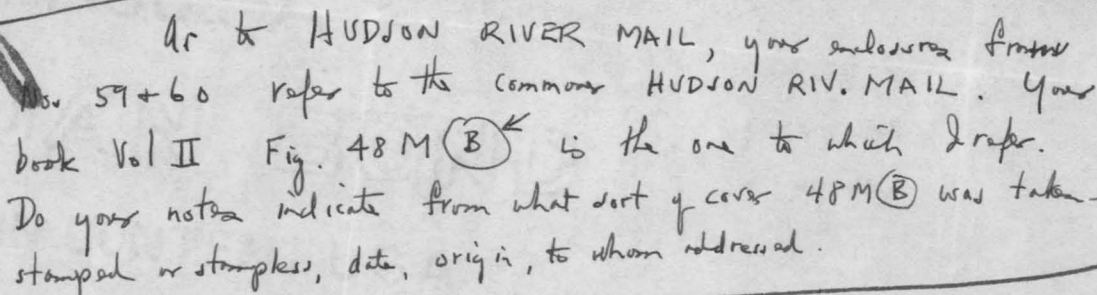 As to HUDSON RIVER MAIL, your enclosures from
Nos. 59 + 60 refer to the common HUDSON RIV. MAIL. Your
book Vol II Fig. 48 M (B) is the one to which I refer.
Do your notes indicate from what sort of cover 48M (B) was taken -
stamped or stampless, date, origin, to whom addressed.